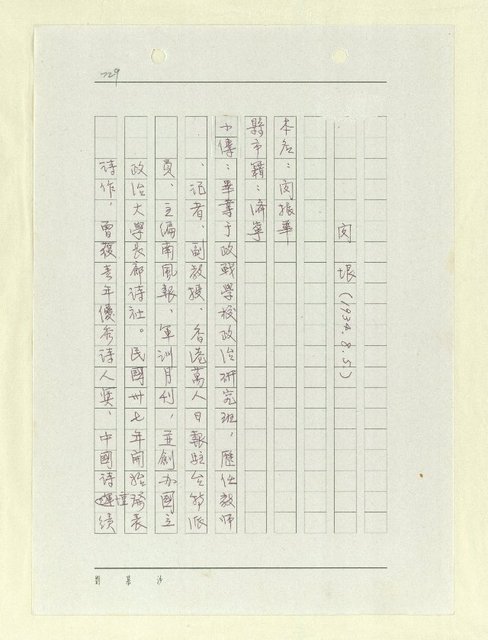 729
閔 垠(1934.8.5)
本名:閔振華
縣市籍:濟寧
小傳:畢業于政戰學校政治研究班,歷任教師
、記者、副教授、香港萬人日報駐台特派
員、主編南風報、軍訓月刊,並創办國立
政治大學長廊詩社。民國卅七年開始發表
詩作,曾獲青年優秀詩人獎、中國詩運績
劉 慕 沙